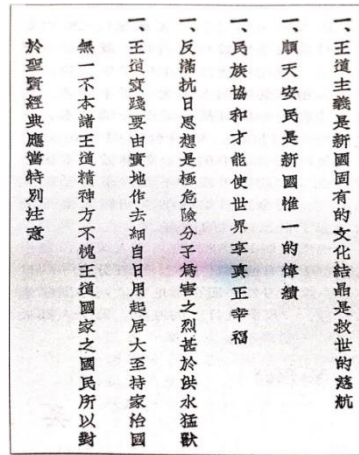 一、王道主義是新國固有的文化結晶是救世的慈航
一、順天安民是新國惟一的偉績
一、民族協和才能使世界享真正幸福
一、反滿抗日思想是極危險分子爲害之烈甚於洪水猛獸
一、王道實踐要由實地作去細自日用起居大至持家治國
無一不本諸王道精神方不愧王道國家之國民所以對
於聖賢經典應當特別注意